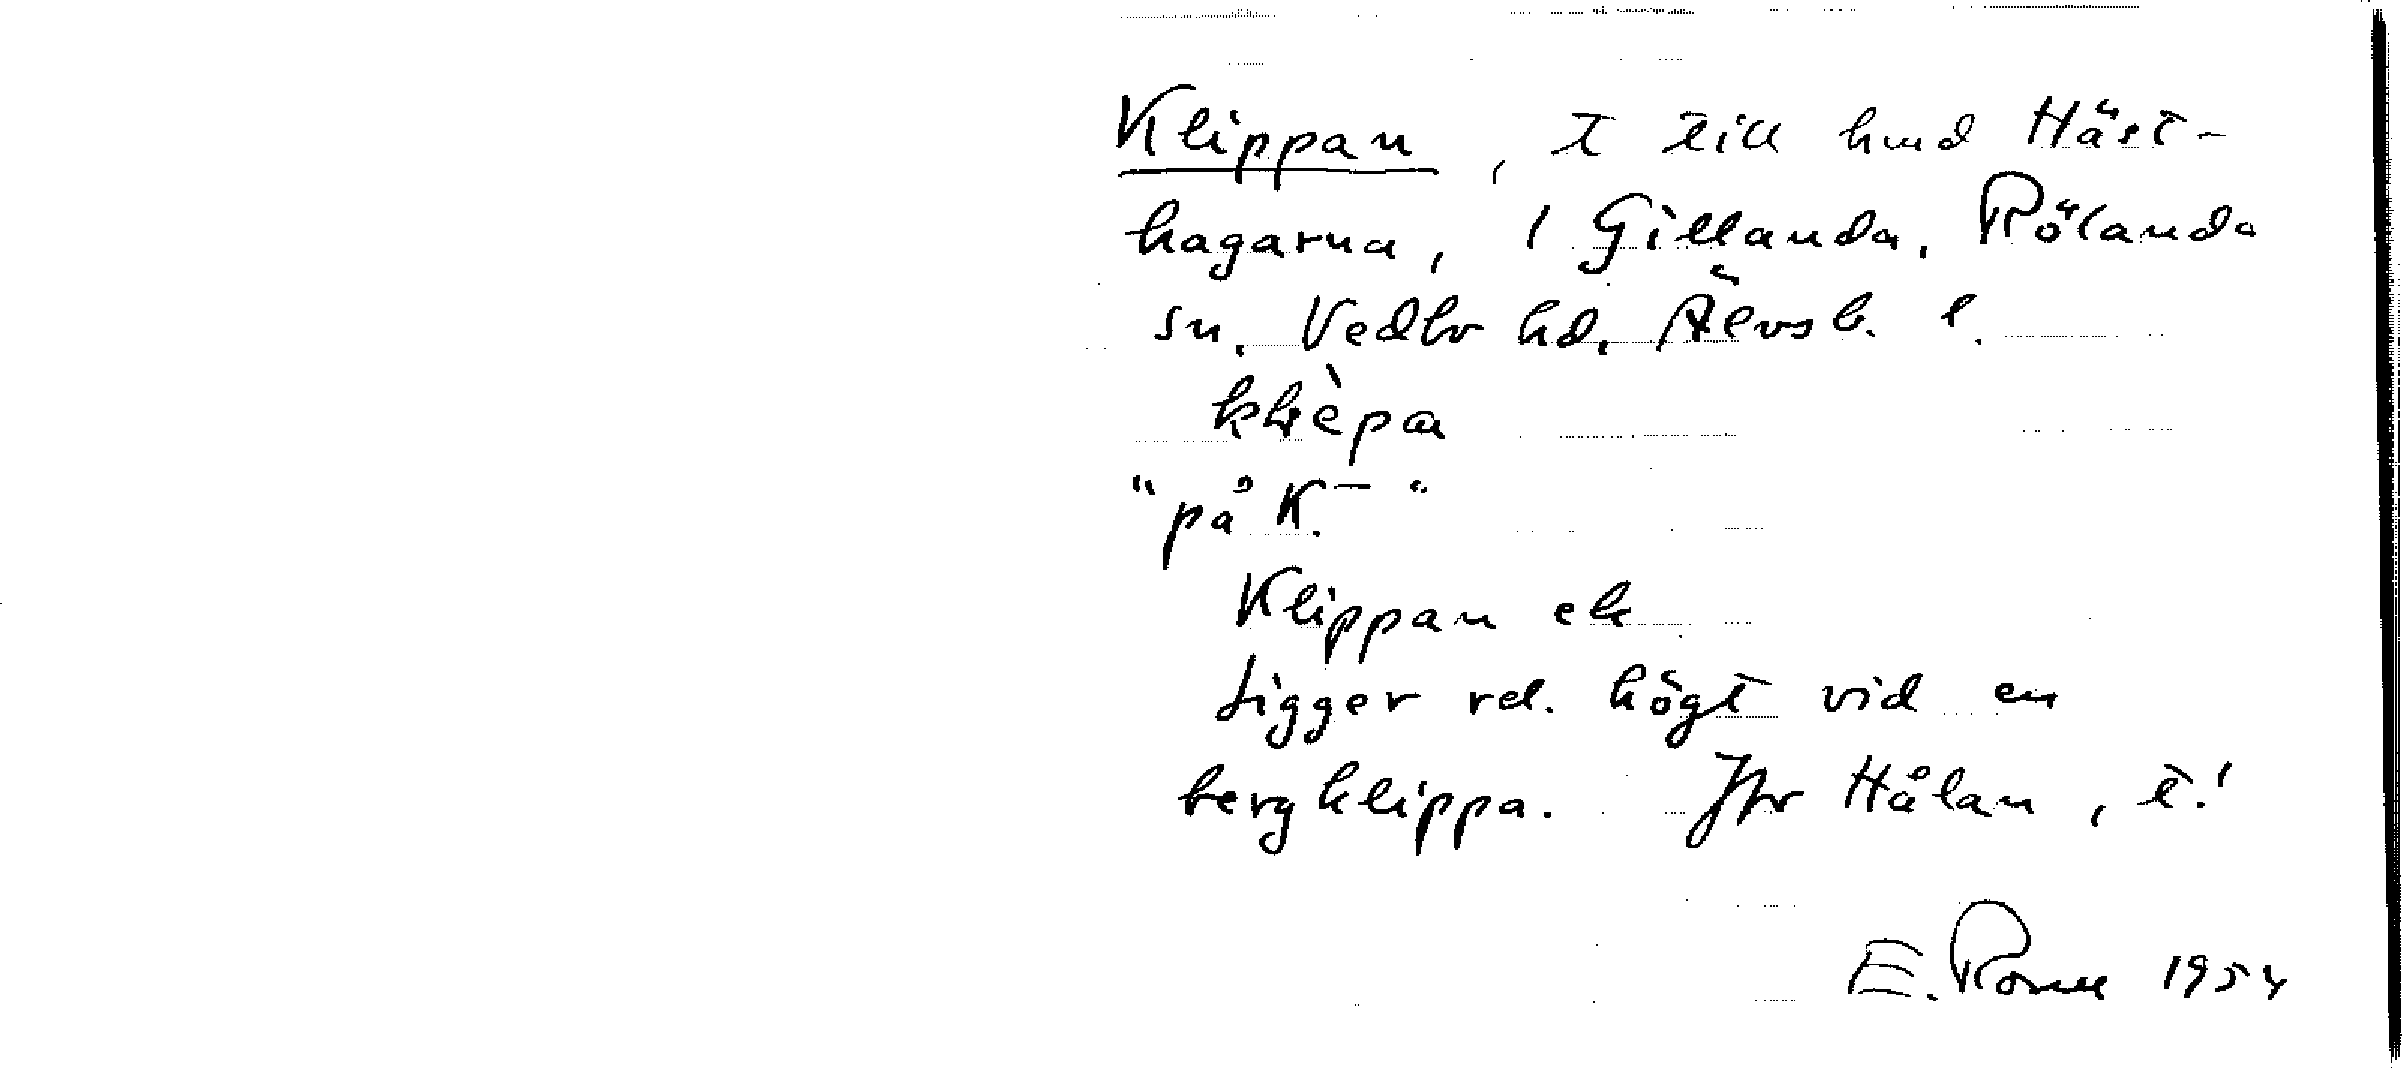 Klippan, t till hmd Häst-
hagarna, 1 Gillanda, Rölanda
sn. Vedbo hd, Älvsb. l.
"på K.-"
Klippan ek
Ligger rel. högt vid en
bergklippa. Jfr Hålan, t.!
E. 1954